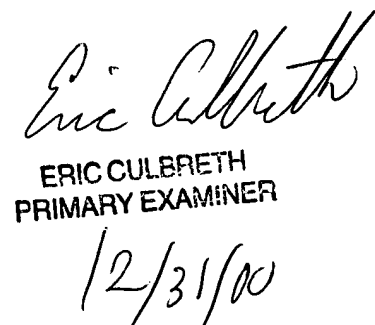 Eric Culbreth
ERIC CULBRETH
PRIMARY EXAMINER
12/31/00